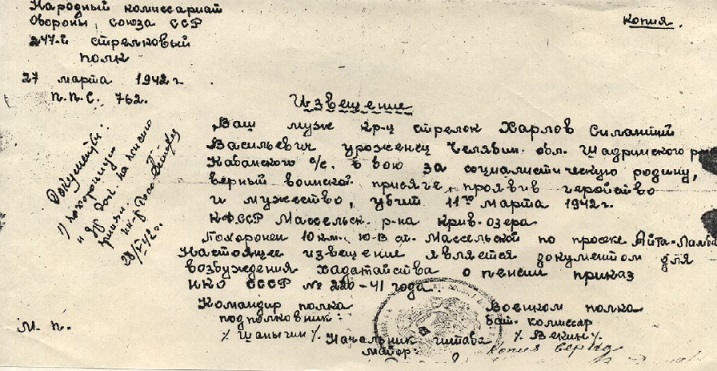 Народный комиссариат
Обороны, Союза ССР
247-й стрелковый
полк
27 марта 1942 г.
П.П.С. 762.
Копия.
Извещение
Ваш муж кр-ц стрелок Харлов Силантий
Васильевич уроженец Челябин. обл. Шадринского р-на
Кабанского с/с. в бою за социалистическую родину,
верный воинской присяге, проявив геройство
и мужество, убит 11го марта 1942 г.
КФССР Массельск. р-на Крив. озера
Похоронен 10 км. Ю-В ст. Массельской по просеке Айта-Ламба
Настоящее извещение является документом для
возбуждения ходатайства о пенсии приказ
НКО СССР № 220-41 года.
Командир полка
подполковник:
/ Шаныгин /.
Военком полка
бат. комиссар
/ Векин /.
Начальник штаба
майор:
М. п.
Копия верна
Документы:
1) похоронную
на
28/V-42 г.